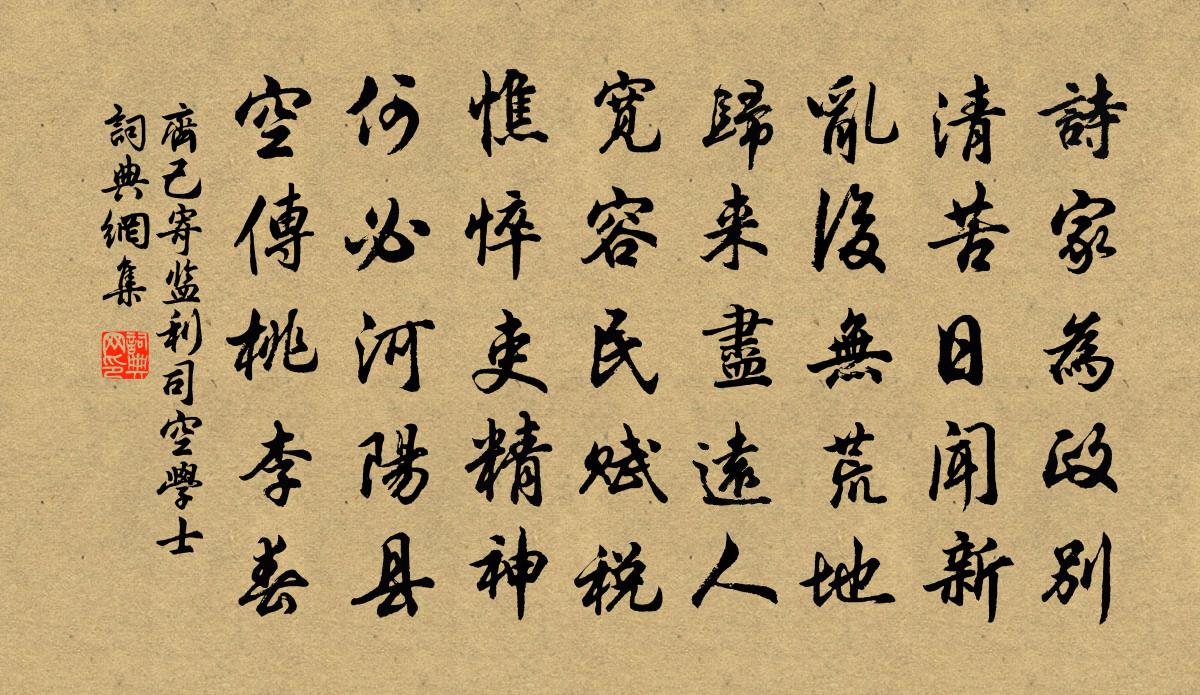 詩家為政別
清苦日聞新
亂後無荒地
歸来盡遠人
寬容民賦税
憔悴吏精神
何必河陽县
空傳桃李春
齊己寄监利司空學士
詞典網集
詞典
网印